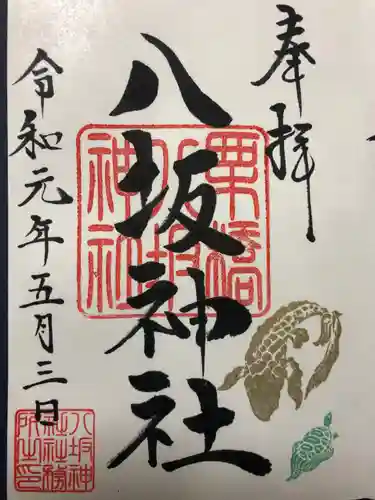 奉拝
八坂神社
栗橋八坂神社
令和元年五月三日
八坂神社社務所之印